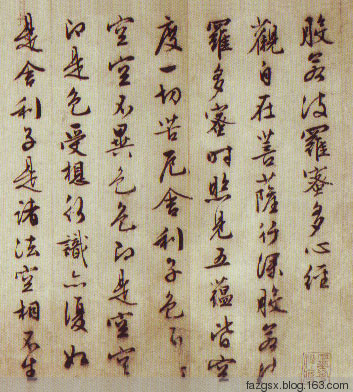 般若波羅蜜多心經
觀自在菩薩行深般若波
羅多蜜時照見五蘊皆空
度一切苦厄舍利子色不
空空不異色色即是空空
即是色受想行識亦復如
是舍利子是諸法空相不生
fazgsx.blog.163.com